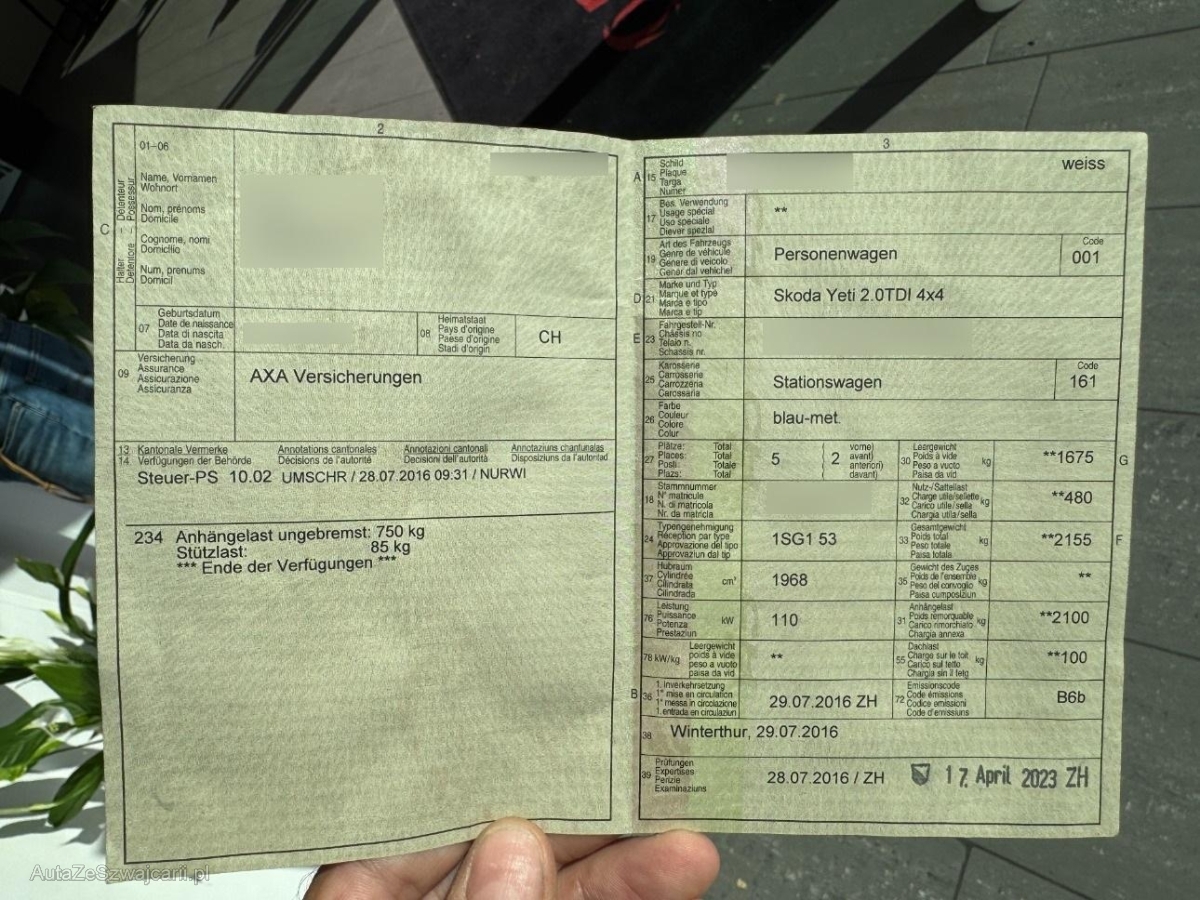 2
01-06
Halter - Détenteur
Detentore - Possessur
C
Name, Vornamen
Wohnort
Nom, prénoms
Domicile
Cognome, nomi
Domicilio
Num, prenums
Domicil
07
Geburtsdatum
Date de naissance
Data di nascita
Data da nasch.
08
Heimatstaat
Pays d'origine
Paese d'origine
Stadi d'origin
CH
09
Versicherung
Assurance
Assicurazione
Assicuranza
AXA Versicherungen
13 Kantonale Vermerke Annotations cantonales Annotazioni cantonali Annotaziuns chantunalas
14 Verfügungen der Behörde Décisions de l'autorité Decisioni dell'autorità Disposiziuns da l'autoritad
Steuer-PS 10.02 UMSCHR / 28.07.2016 09:31 / NURWI
234 Anhängelast ungebremst: 750 kg
Stützlast: 85 kg
*** Ende der Verfügungen ***
3
A 15
Schild
Plaque
Targa
Numer
weiss
17
Bes. Verwendung
Usage spécial
Uso speciale
Diever spezial
**
19
Art des Fahrzeugs
Genre de véhicule
Genere di veicolo
Gener dal vehichel
Personenwagen
Code
001
D 21
Marke und Typ
Marque et type
Marca e tipo
Marca e tip
Skoda Yeti 2.0TDI 4x4
E 23
Fahrgestell-Nr.
Châssis no
Telaio n.
Schassis nr.
25
Karosserie
Carrosserie
Carrozzeria
Carossaria
Stationswagen
Code
161
26
Farbe
Couleur
Colore
Colur
blau-met.
27
Plätze: Total
Places: Total
Posti: Totale
Plazs: Total
5
2
vorne)
avant)
anteriori)
davant)
30
Leergewicht
Poids à vide
Peso a vuoto
Paisa da vid
kg
**1675
G
18
Stammnummer
N° matricule
N. di matricola
Nr. da matricla
32
Nutz-/Sattellast
Charge utile/sellette
Carico utile/sella
Chargia utila/sella
kg
**480
24
Typengenehmigung
Réception par type
Approvazione del tipo
Approvaziun dal tip
1SG1 53
33
Gesamtgewicht
Poids total
Peso totale
Paisa totala
kg
**2155
F
37
Hubraum
Cylindrée
Cilindrata
Cilindrada
cm³
1968
35
Gewicht des Zuges
Poids de l'ensemble
Peso del convoglio
Paisa cumposiziun
kg
**
76
Leistung
Puissance
Potenza
Prestaziun
kW
110
31
Anhängelast
Poids remorquable
Carico rimorchiato
Chargia annexa
kg
**2100
78 kW/kg
Leergewicht
poids à vide
peso a vuoto
paisa da vid
**
55
Dachlast
Charge sur le toit
Carico sul tetto
Chargia sin il tetg
kg
**100
B 36
1. Inverkehrsetzung
1re mise en circulation
1a messa in circolazione
1. entrada en circulaziun
29.07.2016 ZH
72
Emissionscode
Code émissions
Codice emissioni
Code d'emissiuns
B6b
38
Winterthur, 29.07.2016
39
Prüfungen
Expertises
Perizie
Examinaziuns
28.07.2016 / ZH
17. April 2023 ZH
AutaZeSzwajcarii.pl